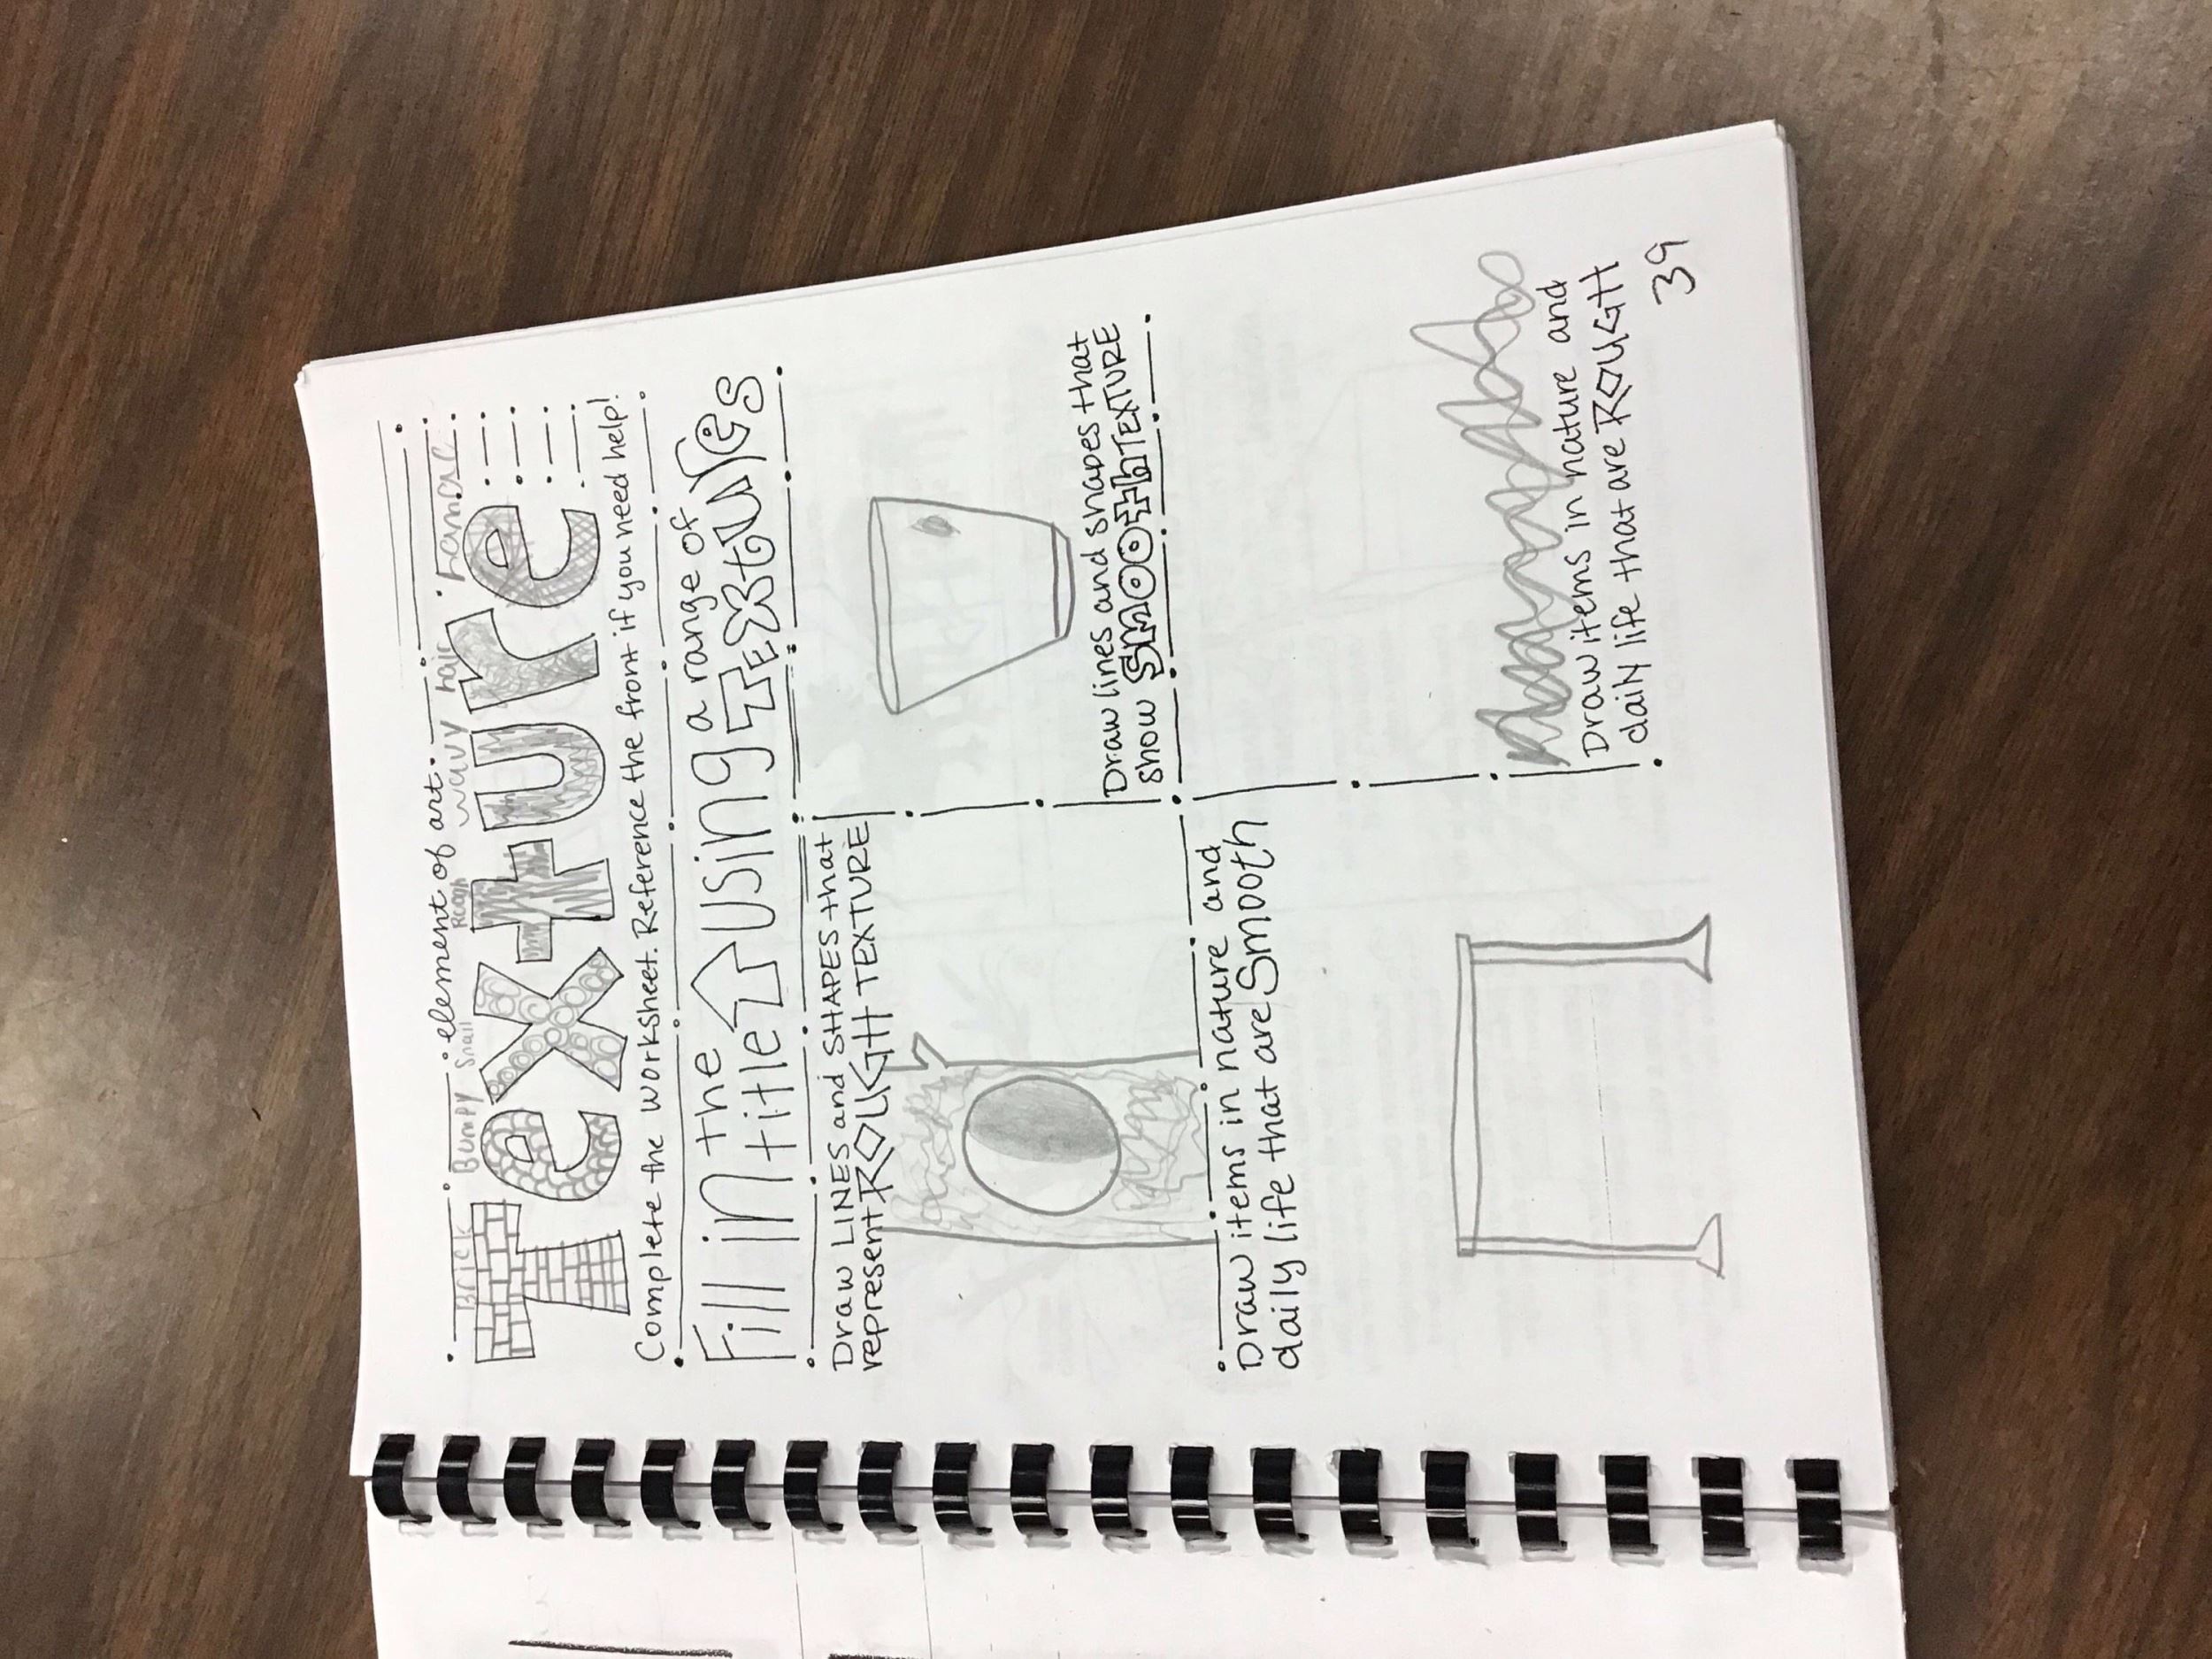 element of art.
Brick Bumpy Snail Rough wavy hair
Texture
Complete the worksheet. Reference the front if you need help!
Fill in the title using a range of TExtures
Draw LINES and SHAPES that
represent ROUGH TEXTURE
Draw lines and shapes that
show SMOOth TEXTURE
Draw items in nature and
daily life that are Smooth
Draw items in nature and
daily life that are ROUGH
39